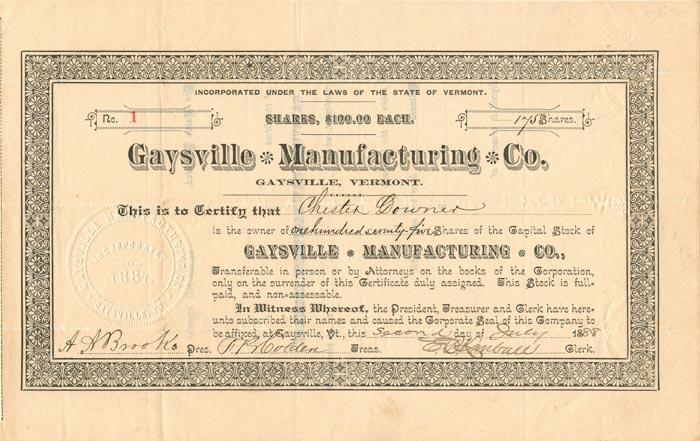 INCORPORATED UNDER THE LAWS OF THE STATE OF VERMONT.
No. 1 SHARES, $100.00 EACH. 175 Shares.
Gaysville * Manufacturing * Co.
GAYSVILLE, VERMONT.
This is to Certify that Chester Downer
is the owner of one hundred seventy-five Shares of the Capital Stock of
GAYSVILLE * MANUFACTURING * CO.,
Transferable in person or by Attorneys on the books of the Corporation,
only on the surrender of this Certificate duly assigned. This Stock is full-
paid, and non-assessable.
In Witness Whereof, the President, Treasurer and Clerk have here-
unto subscribed their names and caused the Corporate Seal of this Company to
be affixed, at Gaysville, Vt., this second day of July 1888
A A Brooks Pres. Holden Treas. Kimball Clerk.
GAYSVILLE MANUFACTURING CO.
INCORPORATED
1887
GAYSVILLE, VT.